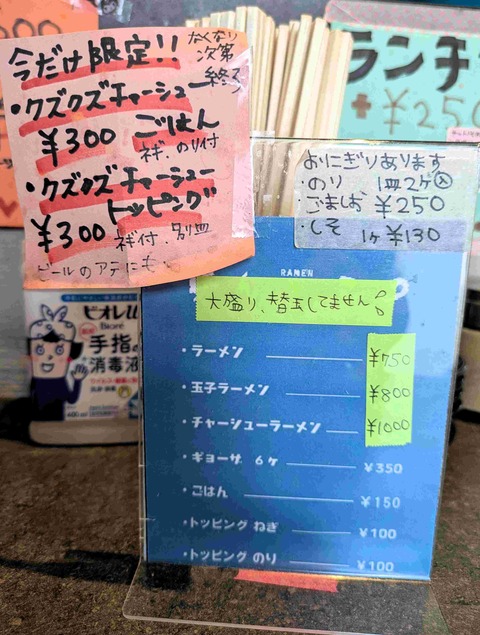 今だけ限定!!
なくなり
次第
終了
・クズクズチャーシュー
¥300 ごはん
ネギ、のり付
・クズクズチャーシュー
トッピング
¥300
ネギ付、別皿
ビールのアテにも
ランチ
+¥250
おにぎりあります
・のり 1皿2ケ入
・ごましお ¥250
・しそ 1ケ ¥130
RAMEN
大盛り、替玉してません!
・ラーメン ¥750
・玉子ラーメン ¥800
・チャーシューラーメン ¥1000
・ギョーザ 6ヶ ¥350
・ごはん ¥150
・トッピング ねぎ ¥100
・トッピング のり ¥100
ビオレu
Bioré
手指の
消毒液